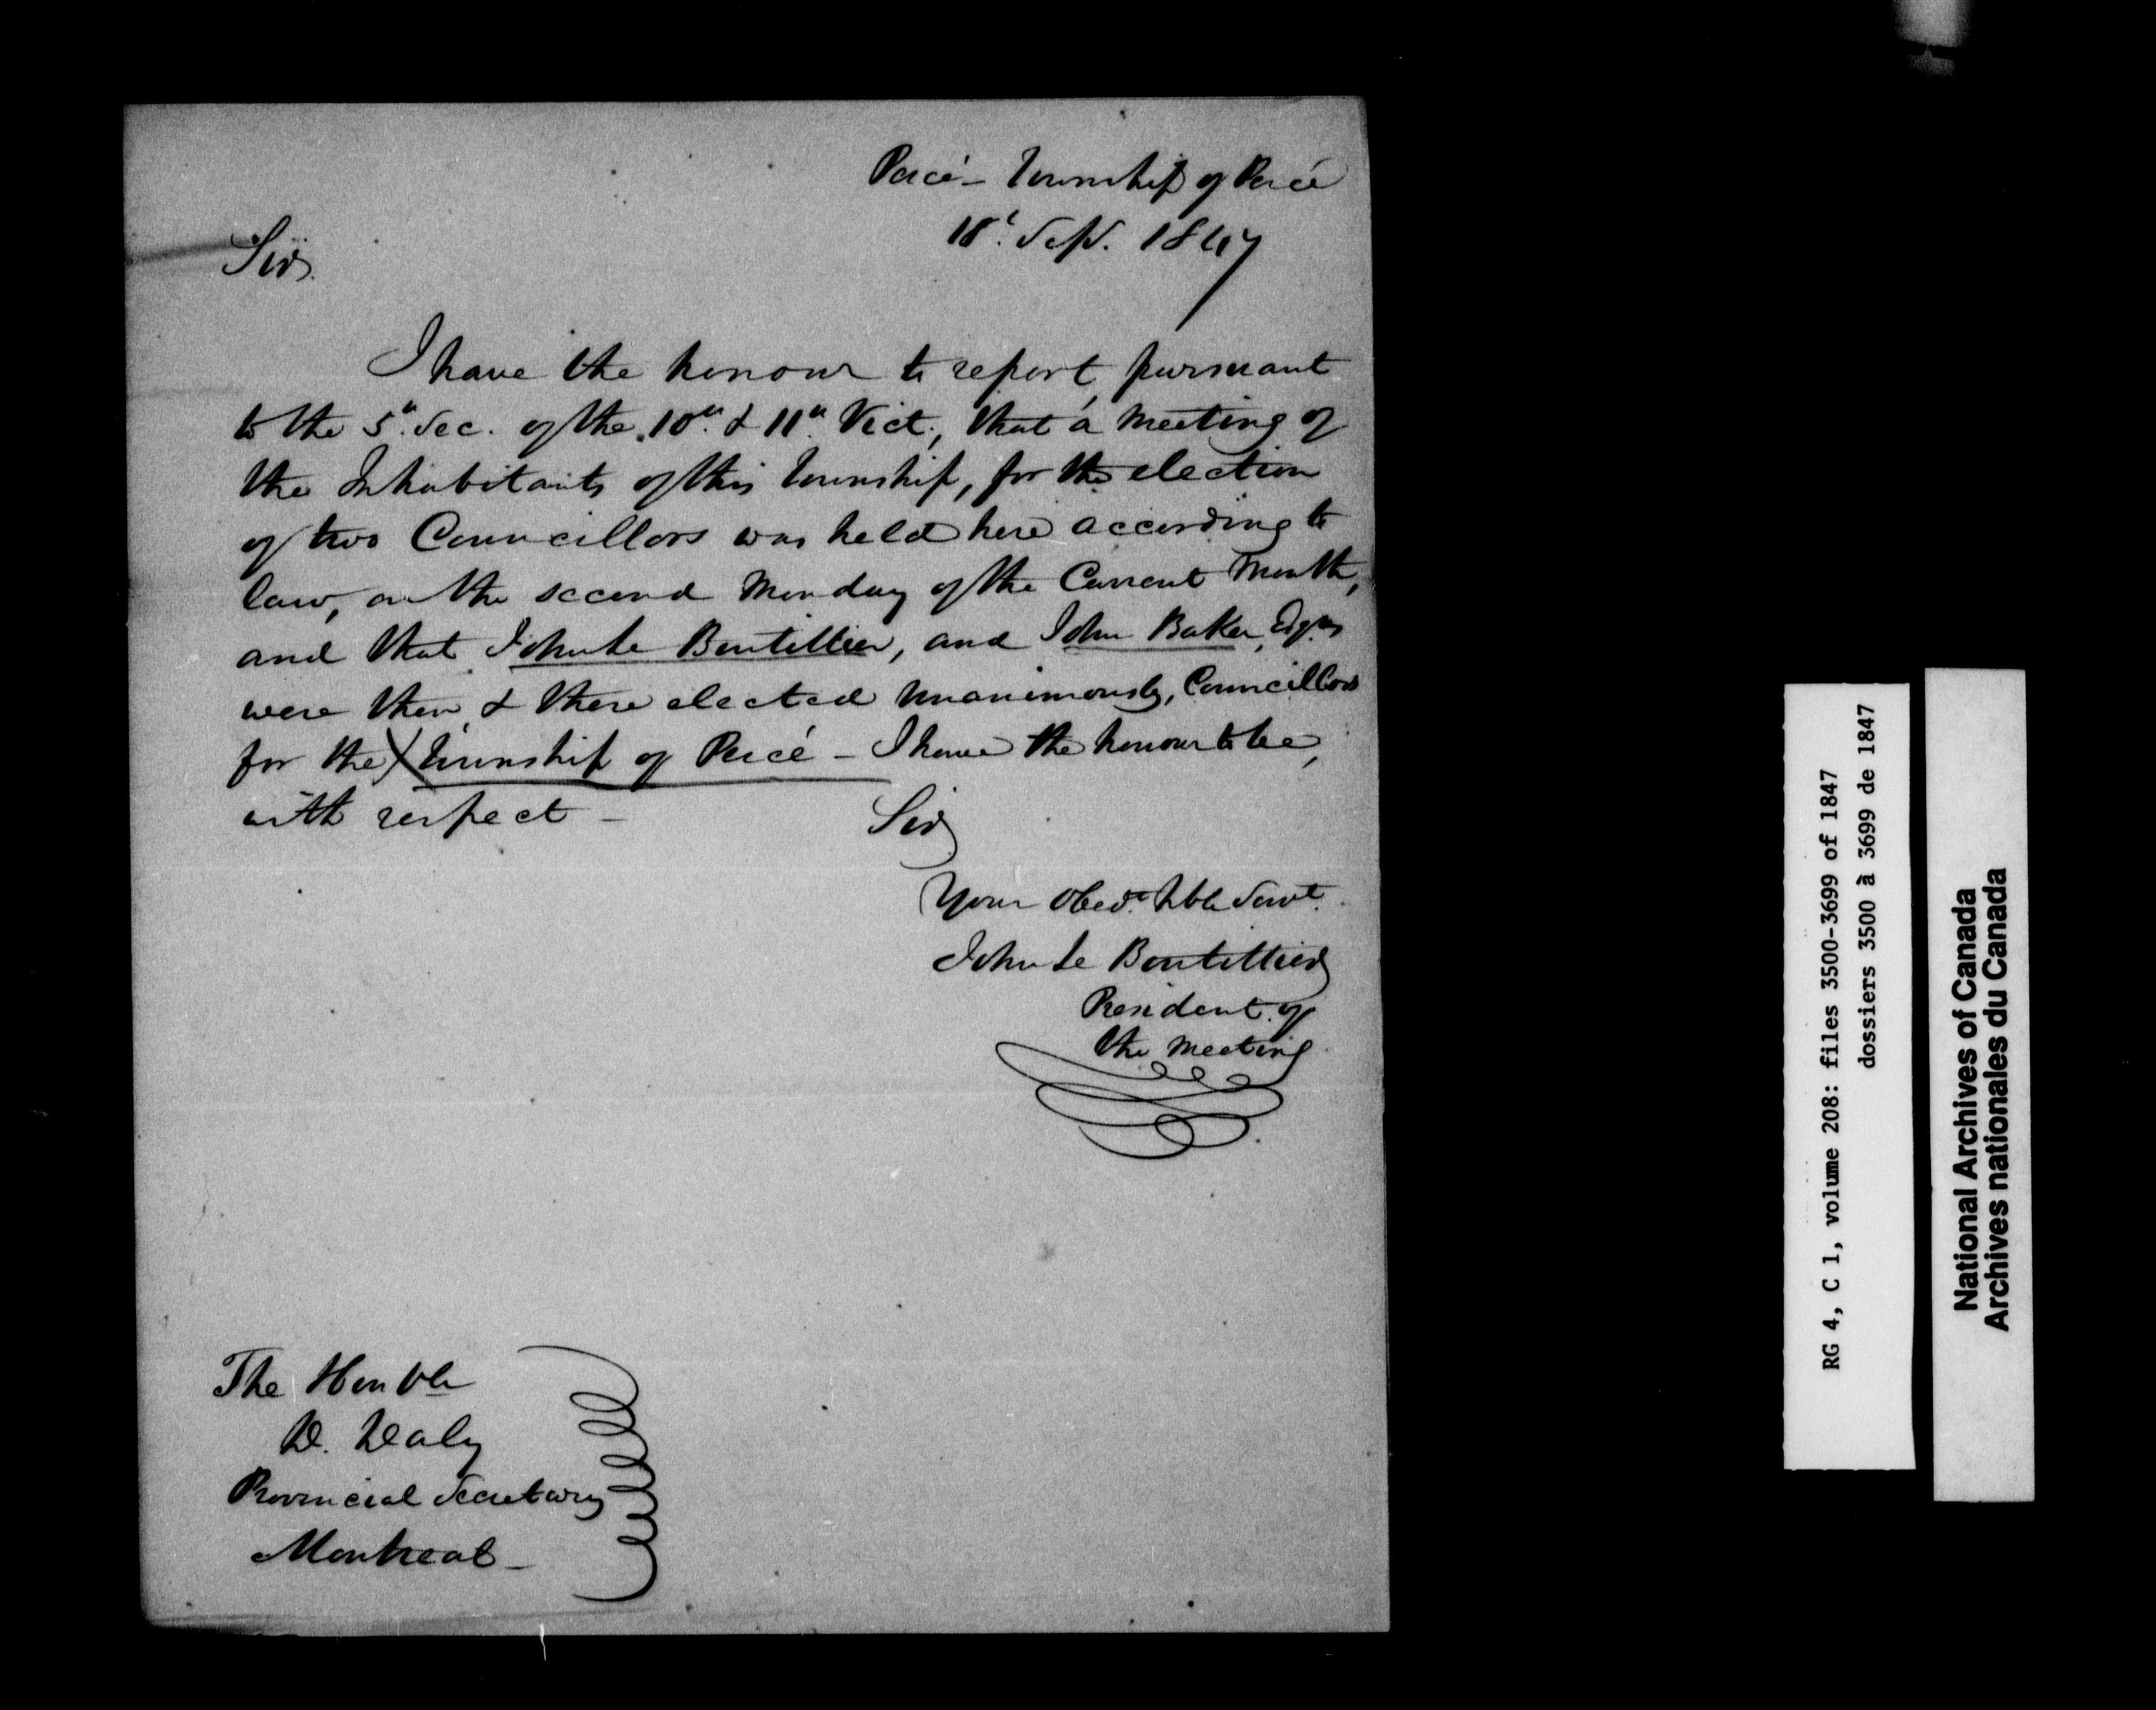 Percé - Township of Percé
18th Sept. 1847
Sir.
I have the honour to report, pursuant
to the 5th Sec. of the 10th & 11th Vict., that a meeting of
the Inhabitants of this Township, for the election
of two Councillors was held here according to
law, on the second Monday of the Current Month,
and that John Le Boutillier, and John Baker, Esqrs
were then & there elected unanimously, Councillors
for the Township of Percé - I have the honour to be,
with respect -
Sir
Your Obedt. hble Servt.
John Le Boutillier
President of
the meeting
The Honble
D. Daly
Provincial Secretary
Montreal -
RG 4, C 1, volume 208: files 3500-3699 of 1847
dossiers 3500 à 3699 de 1847
National Archives of Canada
Archives nationales du Canada